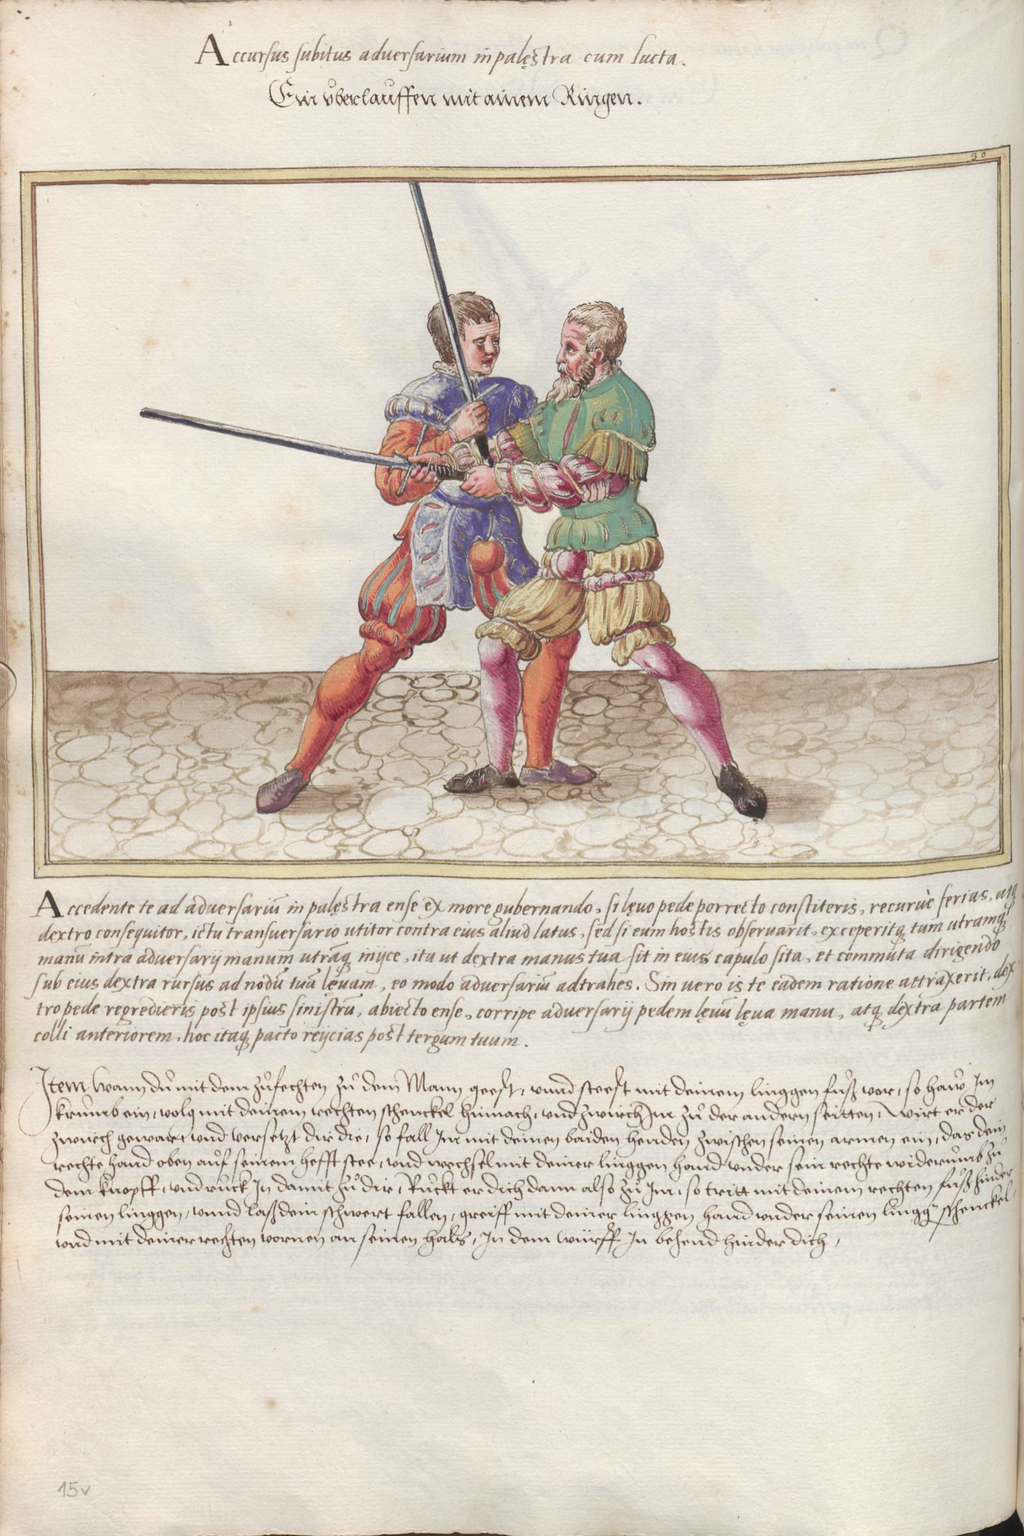 Accursus subitus adversarium in palęstra cum lucta.
Ein überlauffen mit ainem Ringen.
30
Accedente te ad adversariū in palęstra ense ex more gubernando, si lęvo pede porrecto constiteris, recurvè ferias, atq
dextro consequitor, ictu transversario utitor contra eius aliud latus, sed si eum hostis observarit, exceperitq, tum utramq
manū intra adversarij manum utrāq inijce, ita ut dextra manus tua sit in eius capulo sita, et commuta dirigendo
sub eius dextra rursus ad nodū tuū lęvam, eo modo adversariū adtrahes. Sin vero is te eadem ratione attraxerit, dex
tro pede regredieris post ipsius sinistrū, abiecto ense, corripe adversarij pedem lęvū lęva manu, atq dextra partem
colli anteriorem, hoc itaq pacto reijcias post tergum tuum.
Item wann dů mit dem zůfechten zů dem Mann geest, unnd steest mit deinem linggen fuß vor, so haw Im
krumb ein, volg mit deinem rechten schenckel hinnach, und zwirch Im zů der andern seitten, Wirt er der
zwirch gewar, und versetzt dir die, so fall Im mit deinen baiden henden zwischen seinen armen ein, das dein
rechte hand oben auf seinem hefft stee, und wechsel mit deiner linggen hand under sein rechte widerumb zů
dem knopff, und ruck In damit zů dir, Ruckt er dich dann also zů Im, so tritt mit deinem rechten fuß hinder
seinen linggen, unnd laß dein schwert fallen, greiff mit deiner linggen hand under seinen lingg schenckel,
und mit deiner rechten vornen an seinen hals, In dem würff In behend hinder dich,
15v